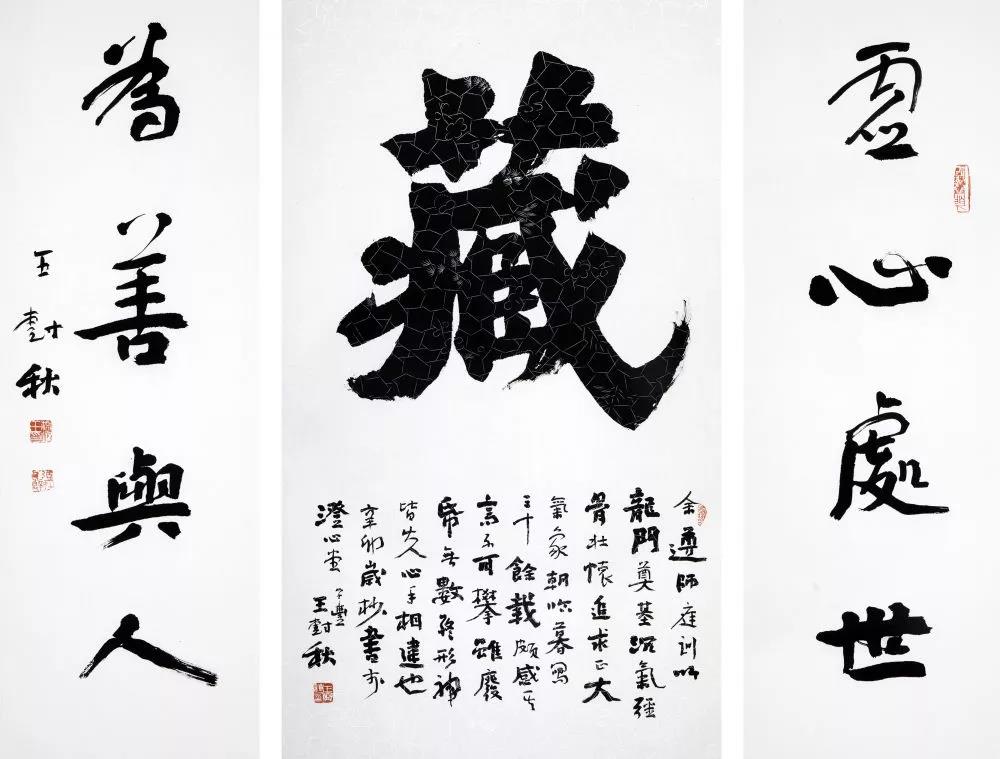 虛心處世
藏
余遵師庭訓以
龍門奠基沉氣強
骨壯懷追求正大
氣象朝吟暮寫
三十餘載頗感其
高不可攀雖廢
紙無數終形神
皆失人心手相違也
辛卯歲杪書於
澄心堂 子豐 王對秋
為善與人
王對秋